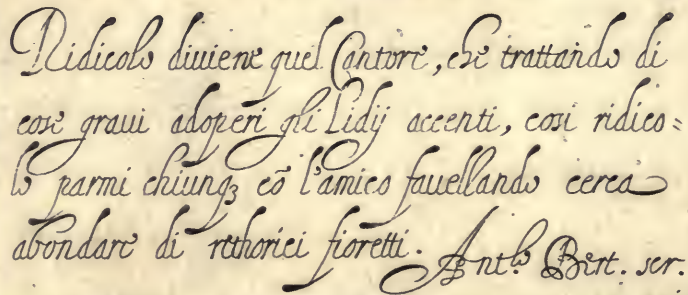 Ridicolo diuiene quel Cantore, che trattando di
cose graui adoperi gli Lidij accenti, cosi ridico=
lo parmi chiunqꝫ cõ l'amico fauellando cerca
abondare di rethorici fioretti. Ant.º Bert. scr.